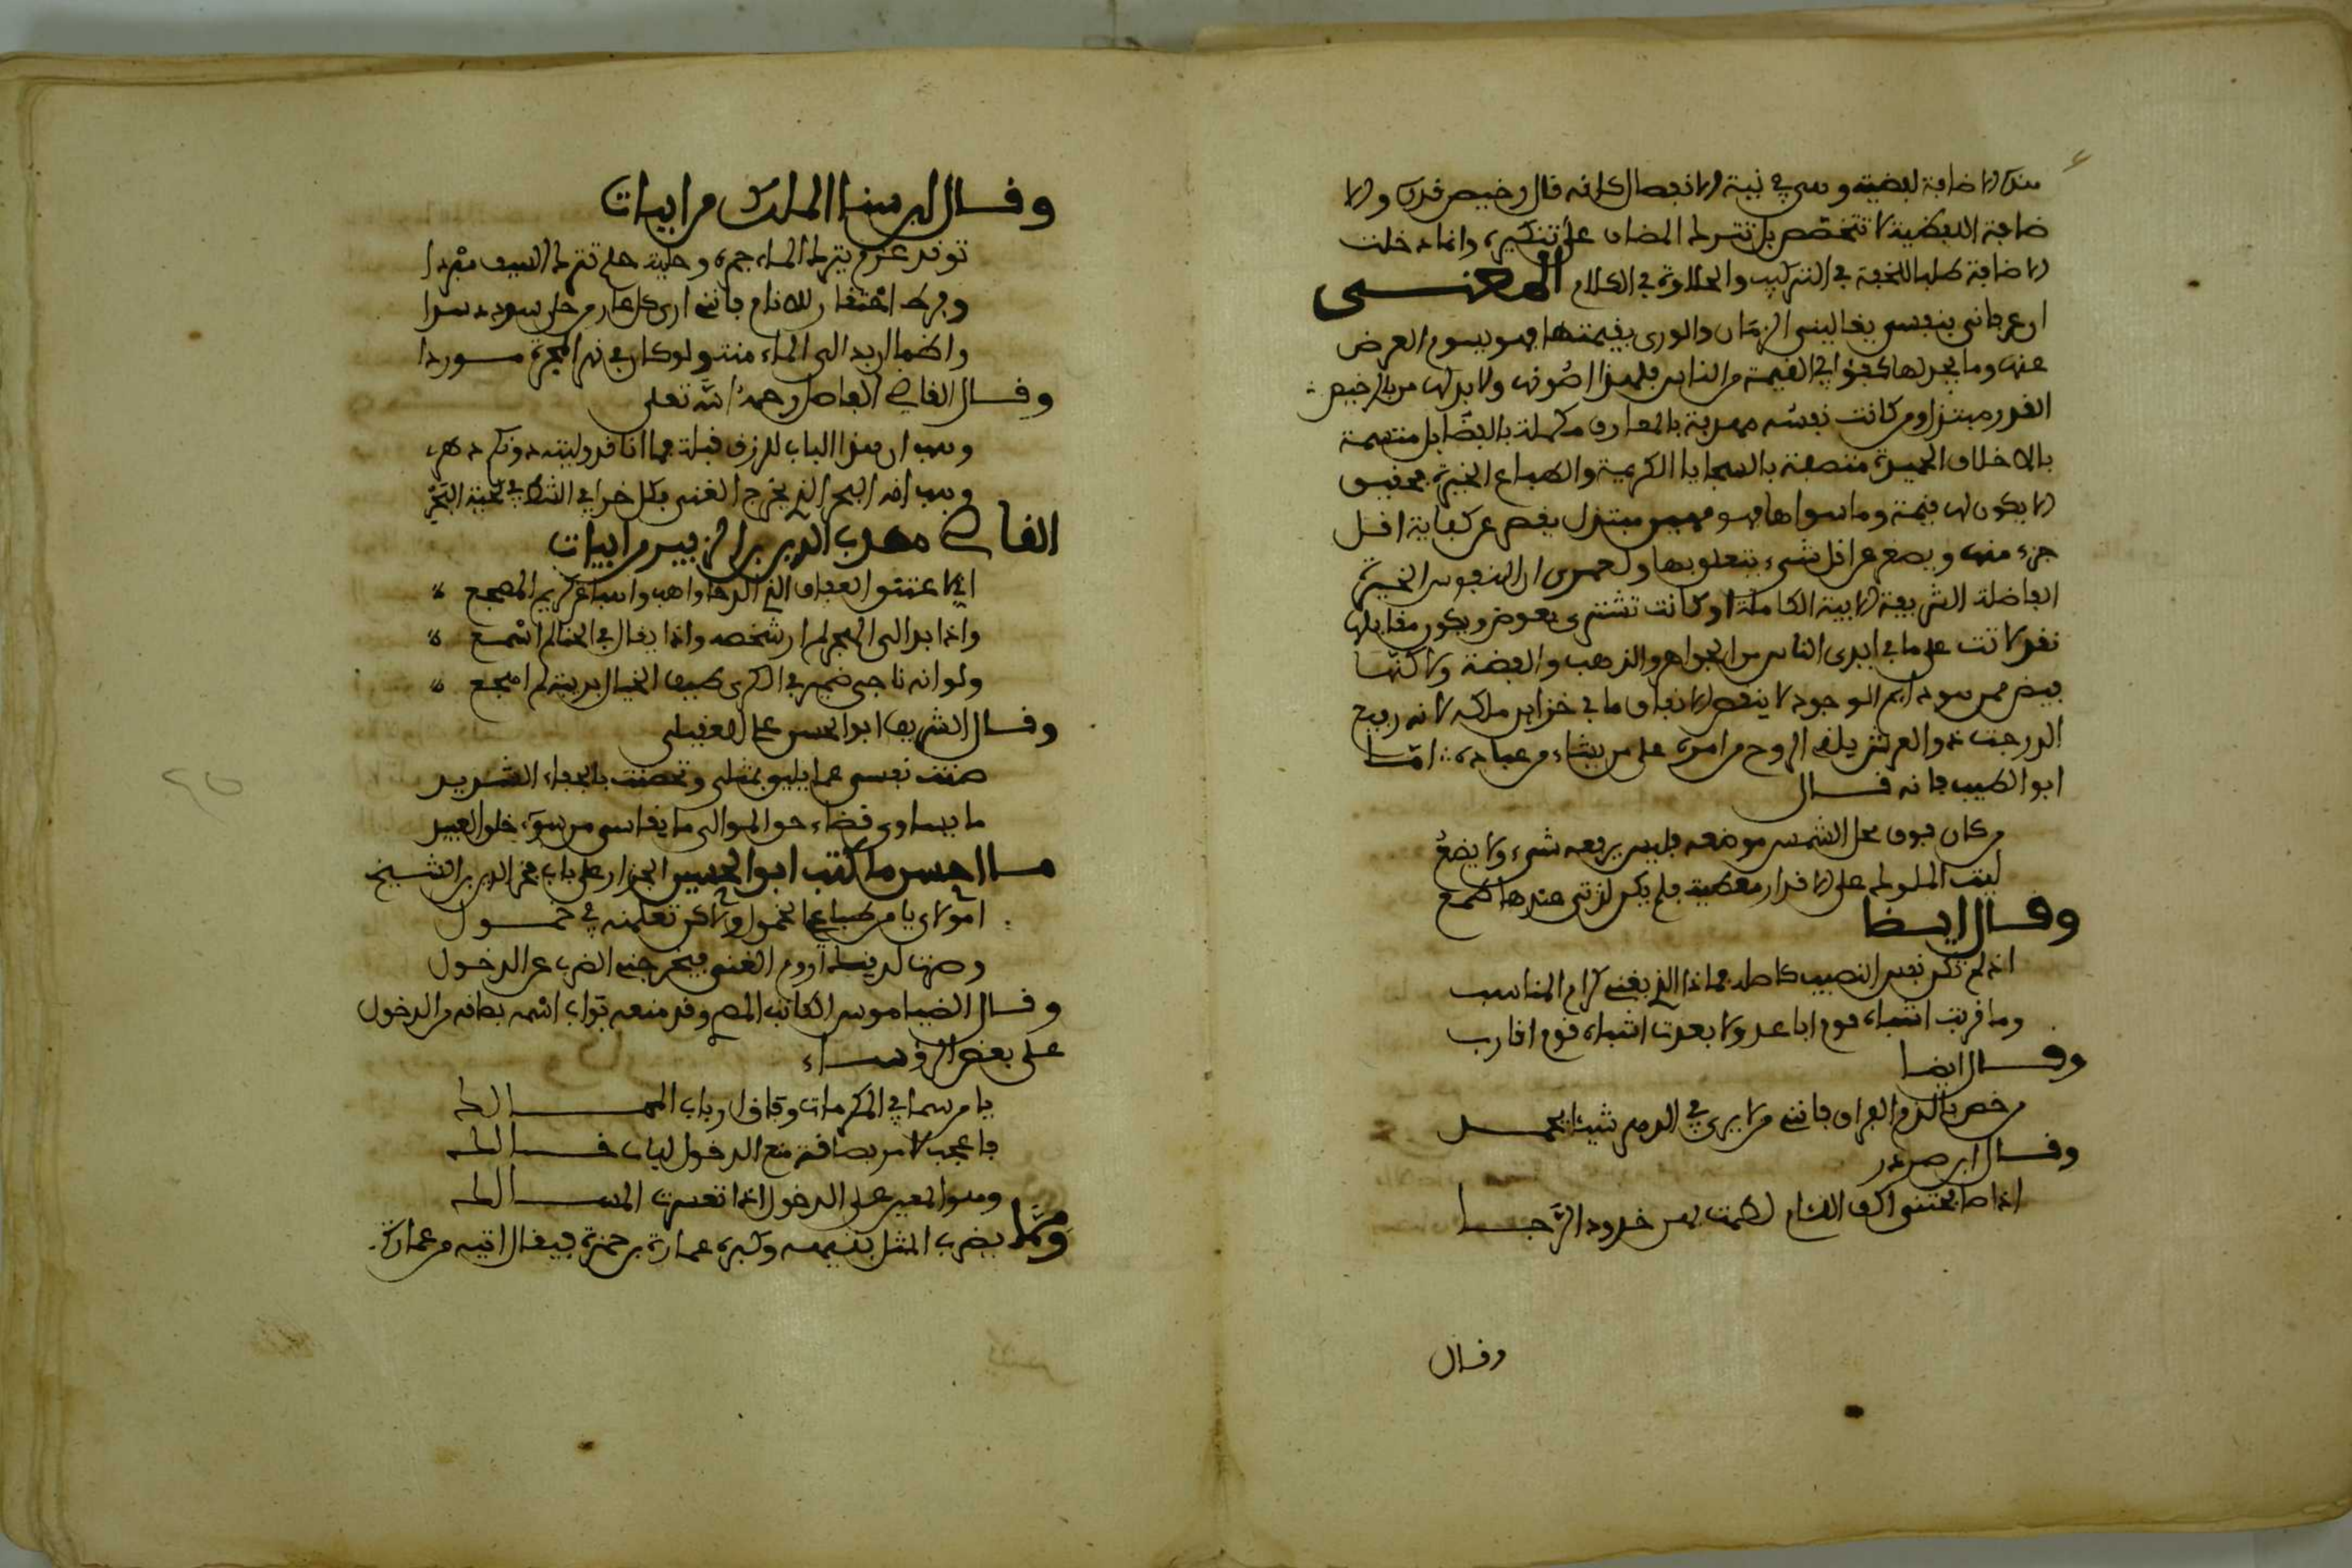 هذه الاضافة لفظية وهي في نية الانفصال كانه قال رخيص قدره والا
ضافة اللفظية لا تتخصص بل تترك المضاف على تنكيره وانما دخلت
الاضافة طلبا للخفة في التركيب والحلاوة في الكلام المعنى
ان عرفاني بنفسي يغاليني الزمان والورى بقيمتها فهو يسوم العرض
عنها وما يجد لها كفؤا في القيمة من الناس فلهذا اصونها ولا ابذلها من رخيص
القدر مبتذل ومن كانت نفسه مهذبة بالمعارف مكملة بالفضايل متسمة
بالاخلاق الحميدة متصفة بالسجايا الكريمة والطباع الخيرة فحقيق
الا يكون لها قيمة وما سواها فهو مبتذل يقصر عن كفاية اقل
جزء منها ويصغر عن اقل شيء يتعلق بها ولعمري ان النفوس الخيرة
الفاضلة الشريفة الابية الكاملة لو كانت تشترى بعوض ويكون مقابلها
نقد لاتت على ما في ايدي الناس من الجواهر والذهب والفضة ولاكنها
فيض من سودايم الوجود لا ينقص الانفاق ما في خزاين ملكه لانه رفيع
الدرجت ذو العرش يلقي الروح من امره على من يشاء من عباده ∴ امّا
ابو الطيب فانه قال
من كان فوق محل الشمس موضعه فليس يرفعه شيء ولا يضعُ
ليت الملوك على الاقدار معطية فلم يكن لدني عندها طمع
وقال ايضا
اذا لم تكن نفس النسيب كاصله فماذا الذي يغني كرام المناسب
وما قربت اشباه قوم اباعد ولا بعدت اشباه قوم اقارب
وقال ايضا
من خص بالذم الفراق فانني من لا يرى في الدهر شيئا يحمد
وقال ابن صردر
اذا صافحتني اكف اللئام لطمت بهن خدود الرجا
وقال
وقال ابن سنا الملك من ابيات
توقد عزمي يترك الماء جمرة وحلية حلمي تترك السيف مبردا
وفرط احتقاري للانام فانني ارى كل عار من حلى سوددي سدا
واظما ان ابدا لي الماء منة ولو كان في نهر المجرة موردا
وقال القاضي الفاضل رحمه الله تعلى
وهب ان هذا الباب للرزق قبلة فها انا قد وليته دونكم دهري
وهب انه البحر الذي يخرج الغنى فكل خرا في الثط في لحية البحر
القاضي مهذب الدين بن الزبير من ابيات
انا لا عتق العفاف الذي الردا واهب واسباغ كريم المضجع
واذا بدا لي الهجر لم ار شخصه واذا يقال لي الخنا لم اسمع
ولو انه ناجى ضميري في الكرى طيف الخيال بريبة لم اهجع
وقال الشريف ابو الحسن علي العقيلي
صنت نفسي عما يليق بمثلي وتحصنت بالجفاء الشديد
ما يساوي قضاء حق الموالي ما يقاسى من سوء خلق العبيد
ما احسن ما كتب ابو الحسين الجزار على باب فخر الدين بن الشيخ
امولاي يا من طباعي الخمول ولاكن تعلمته في خمول
وصرت لديك اروم الغنى فيخرجني الضرب عن الدخول
وقال الضيا موسى الكاتب المصري وقد منعه بواب اسمه بصاقه من الدخول
على بعض الرؤساء
يا من سما في المكرمات وفاق ارباب الممالك
فاعجب لامر بصاقة منع الدخول لباب ذالك
وهو المعين على الدخول اذا تعسرت المسالك
ومما يضرب المثل بتيهه وكبره عمارة بن حمزة فيقال اتيه من عمارة